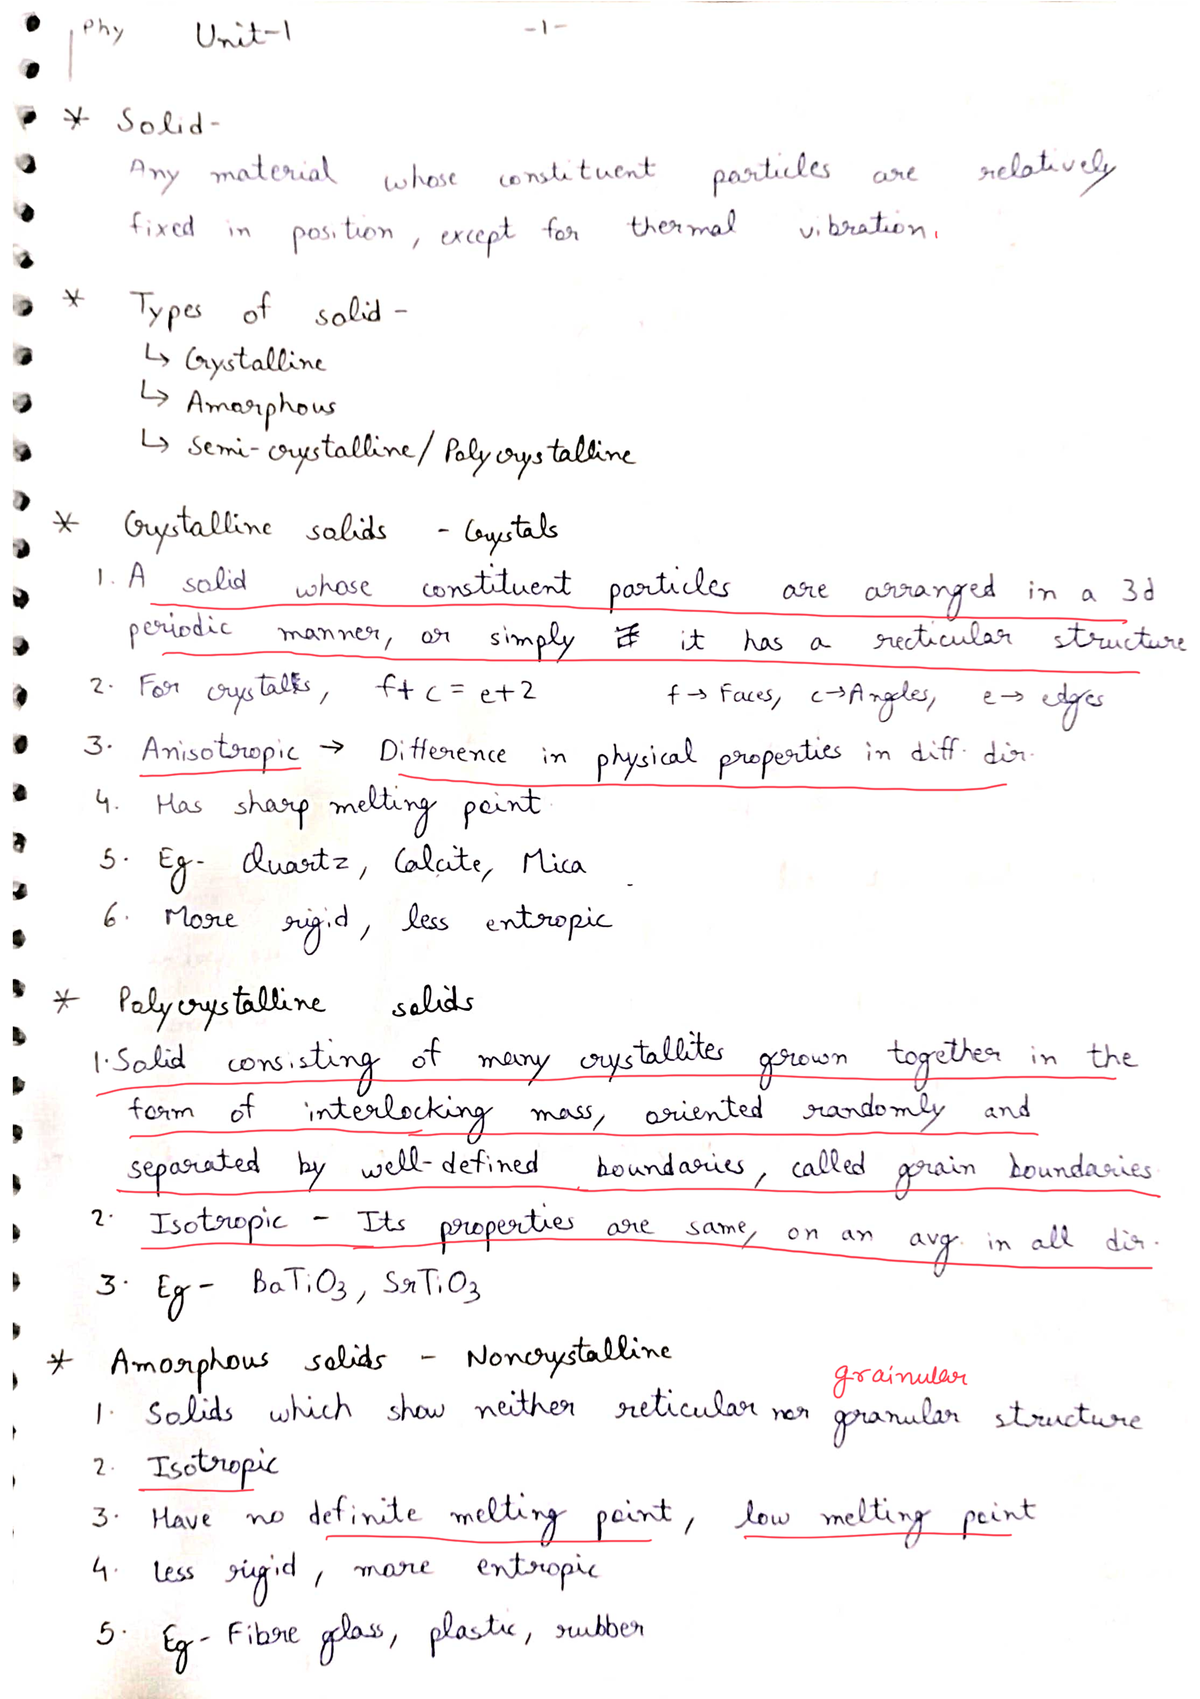 Phy Unit-1 -1-
* Solid-
Any material whose constituent particles are relatively
fixed in position, except for thermal vibration.
* Types of solid -
↳ Crystalline
↳ Amorphous
↳ Semi-crystalline/Polycrystalline
* Crystalline solids - Crystals
1. A solid whose constituent particles are arranged in a 3d
periodic manner, or simply it has a recticular structure
2. For crystals, f+c=e+2 f→Faces, c→Angles, e→edges
3. Anisotropic → Difference in physical properties in diff. dir.
4. Has sharp melting point.
5. Eg- Quartz, Calcite, Mica
6. More rigid, less entropic
* Polycrystalline solids
1. Solid consisting of many crystallites grown together in the
form of interlocking mass, oriented randomly and
separated by well-defined boundaries, called grain boundaries.
2. Isotropic - Its properties are same, on an avg. in all dir.
3. Eg- BaTiO3, SrTiO3
* Amorphous solids - Noncrystalline
grainular
1. Solids which show neither reticular nor granular structure
2. Isotropic
3. Have no definite melting point, low melting point
4. less rigid, more entropic
5. Eg- Fibre glass, plastic, rubber